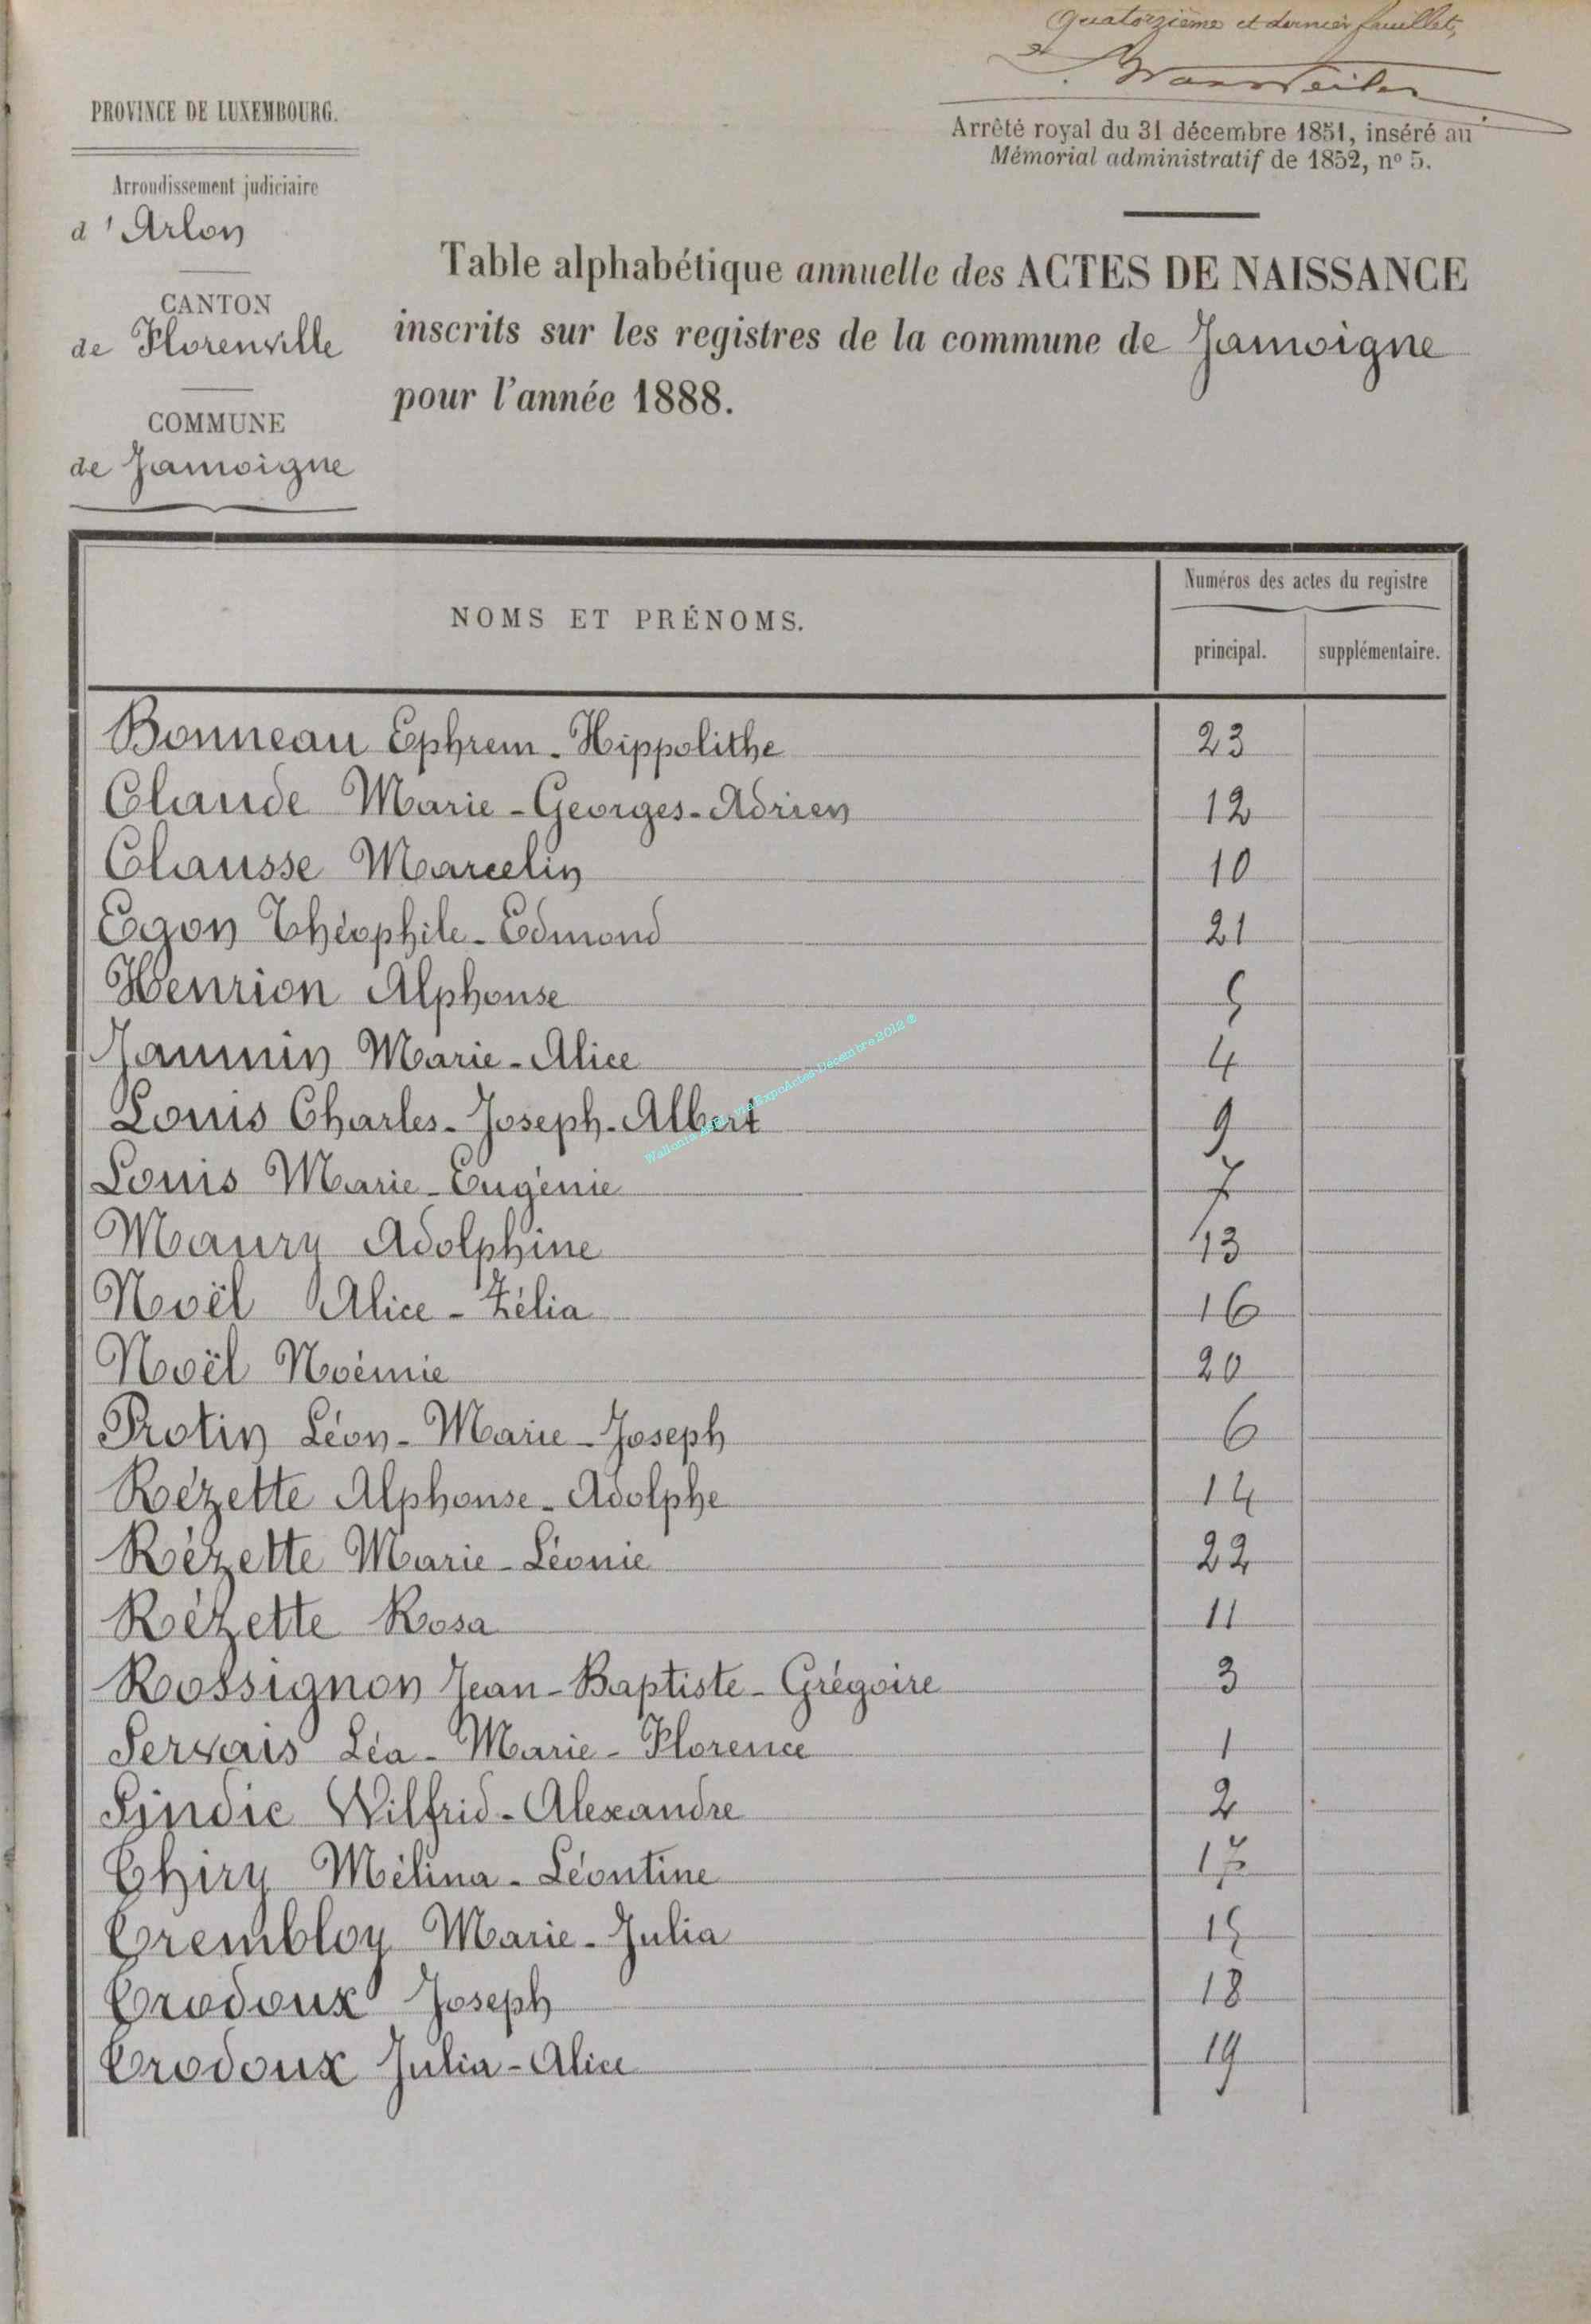 quatorzième et dernier feuillet,
PROVINCE DE LUXEMBOURG.
Arrêté royal du 31 décembre 1851, inséré au
Mémorial administratif de 1852, nº 5.
Arrondissement judiciaire
d'Arlon
CANTON
de Florenville
COMMUNE
de Jamoigne
Table alphabétique annuelle des ACTES DE NAISSANCE
inscrits sur les registres de la commune de Jamoigne
pour l'année 1888.
NOMS ET PRÉNOMS.
Numéros des actes du registre
principal. supplémentaire.
Bonneau Ephrem-Hippolithe 23
Claude Marie-Georges-Adrien 12
Clausse Marcelin 10
Egon Théophile-Edmond 21
Henrion Alphonse 5
Jaumin Marie-Alice 4
Louis Charles-Joseph-Albert 9
Louis Marie-Eugénie 7
Maury Adolphine 13
Noël Alice-Zélia 16
Noël Noémie 20
Protin Léon-Marie-Joseph 6
Rézette Alphonse-Adolphe 14
Rézette Marie-Léonie 22
Rézette Rosa 11
Rossignon Jean-Baptiste-Grégoire 3
Servais Léa-Marie-Florence 1
Sindic Wilfrid-Alexandre 2
Thiry Mélina-Léontine 17
Trembloy Marie-Julia 15
Trodoux Joseph 18
Trodoux Julia-Alice 19
Wallonia ASBL via ExpoActes Décembre 2012 ©